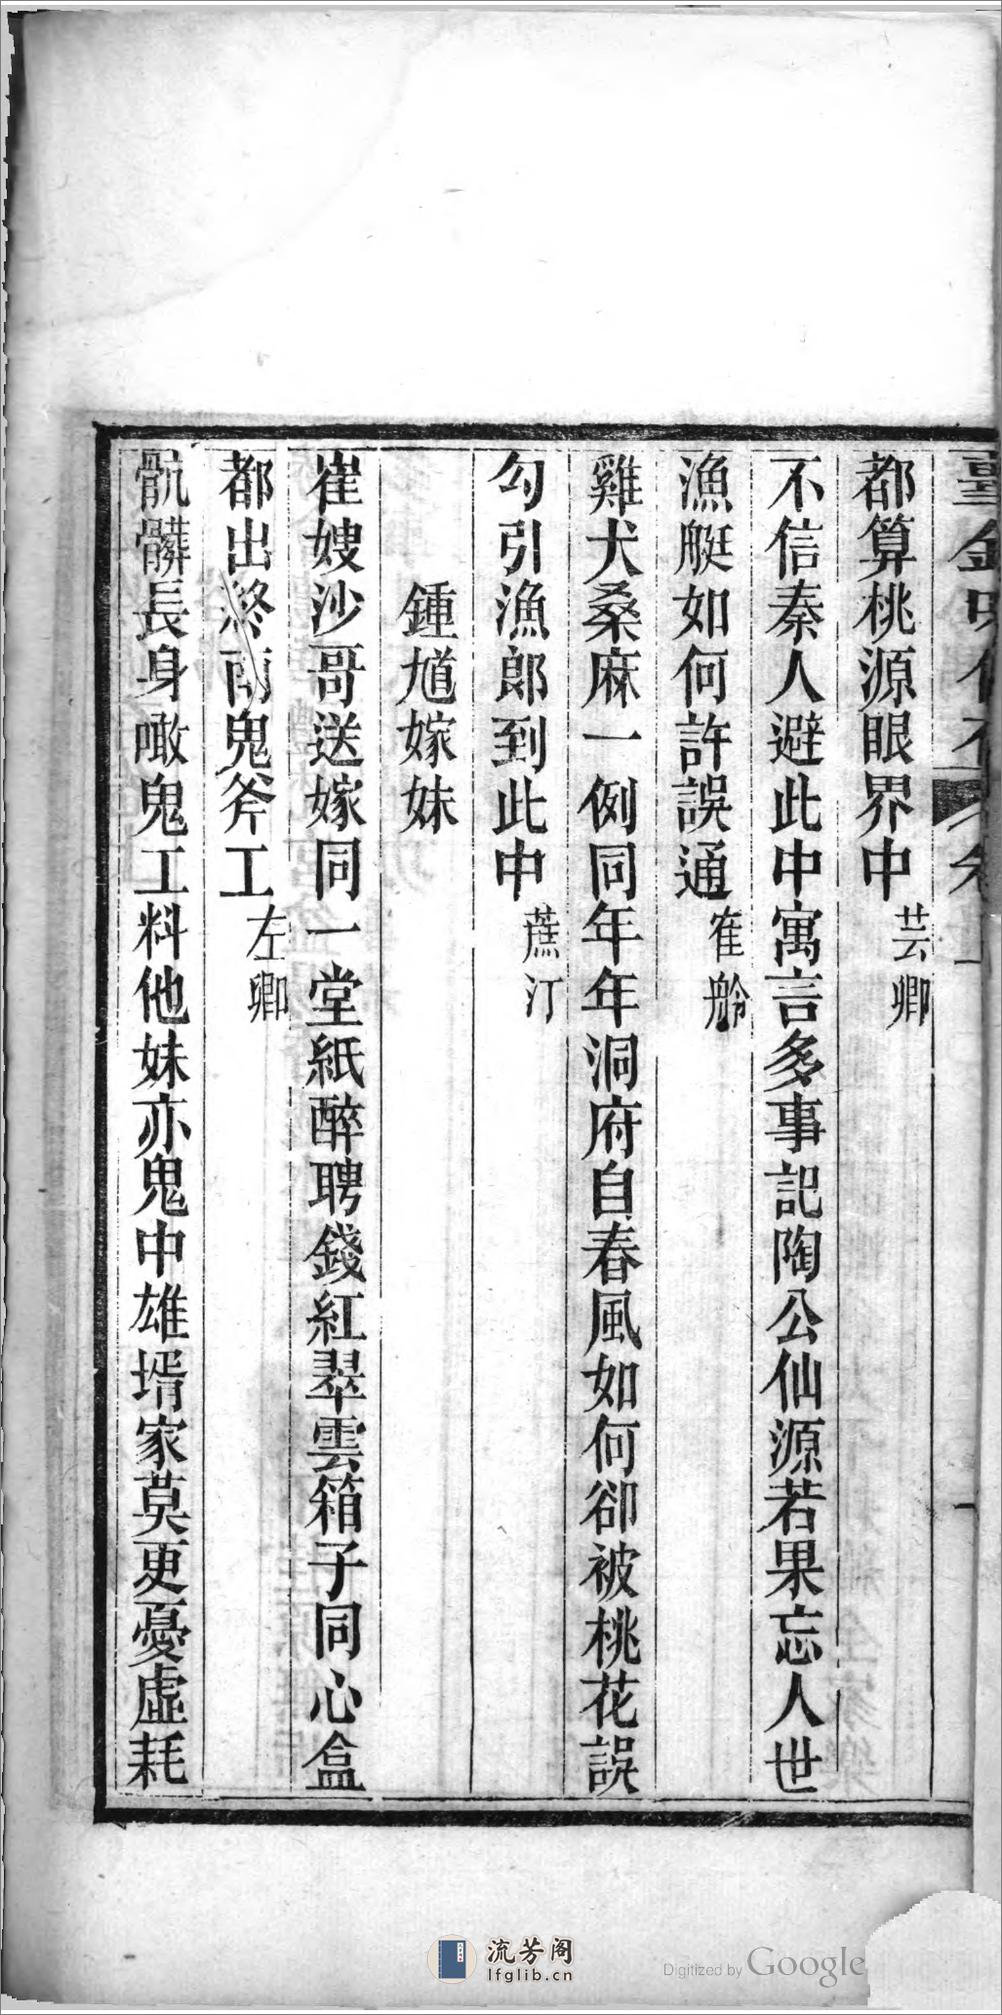 都算桃源眼界中 芸卿
不信秦人避此中寓言多事記陶公仙源若果忘人世
漁艇如何許誤通 雈舲
雞犬桑麻一例同年年洞府自春風如何卻被桃花誤
勾引漁郎到此中 蔗汀
鍾馗嫁妹
崔嫂沙哥送嫁同一堂紙醉聘錢紅翠雲箱子同心盒
都出終南鬼斧工 左卿
骯髒長身噉鬼工料他妹亦鬼中雄壻家莫更憂虛耗
流芳阁
lfglib.cn
Digitized by Google